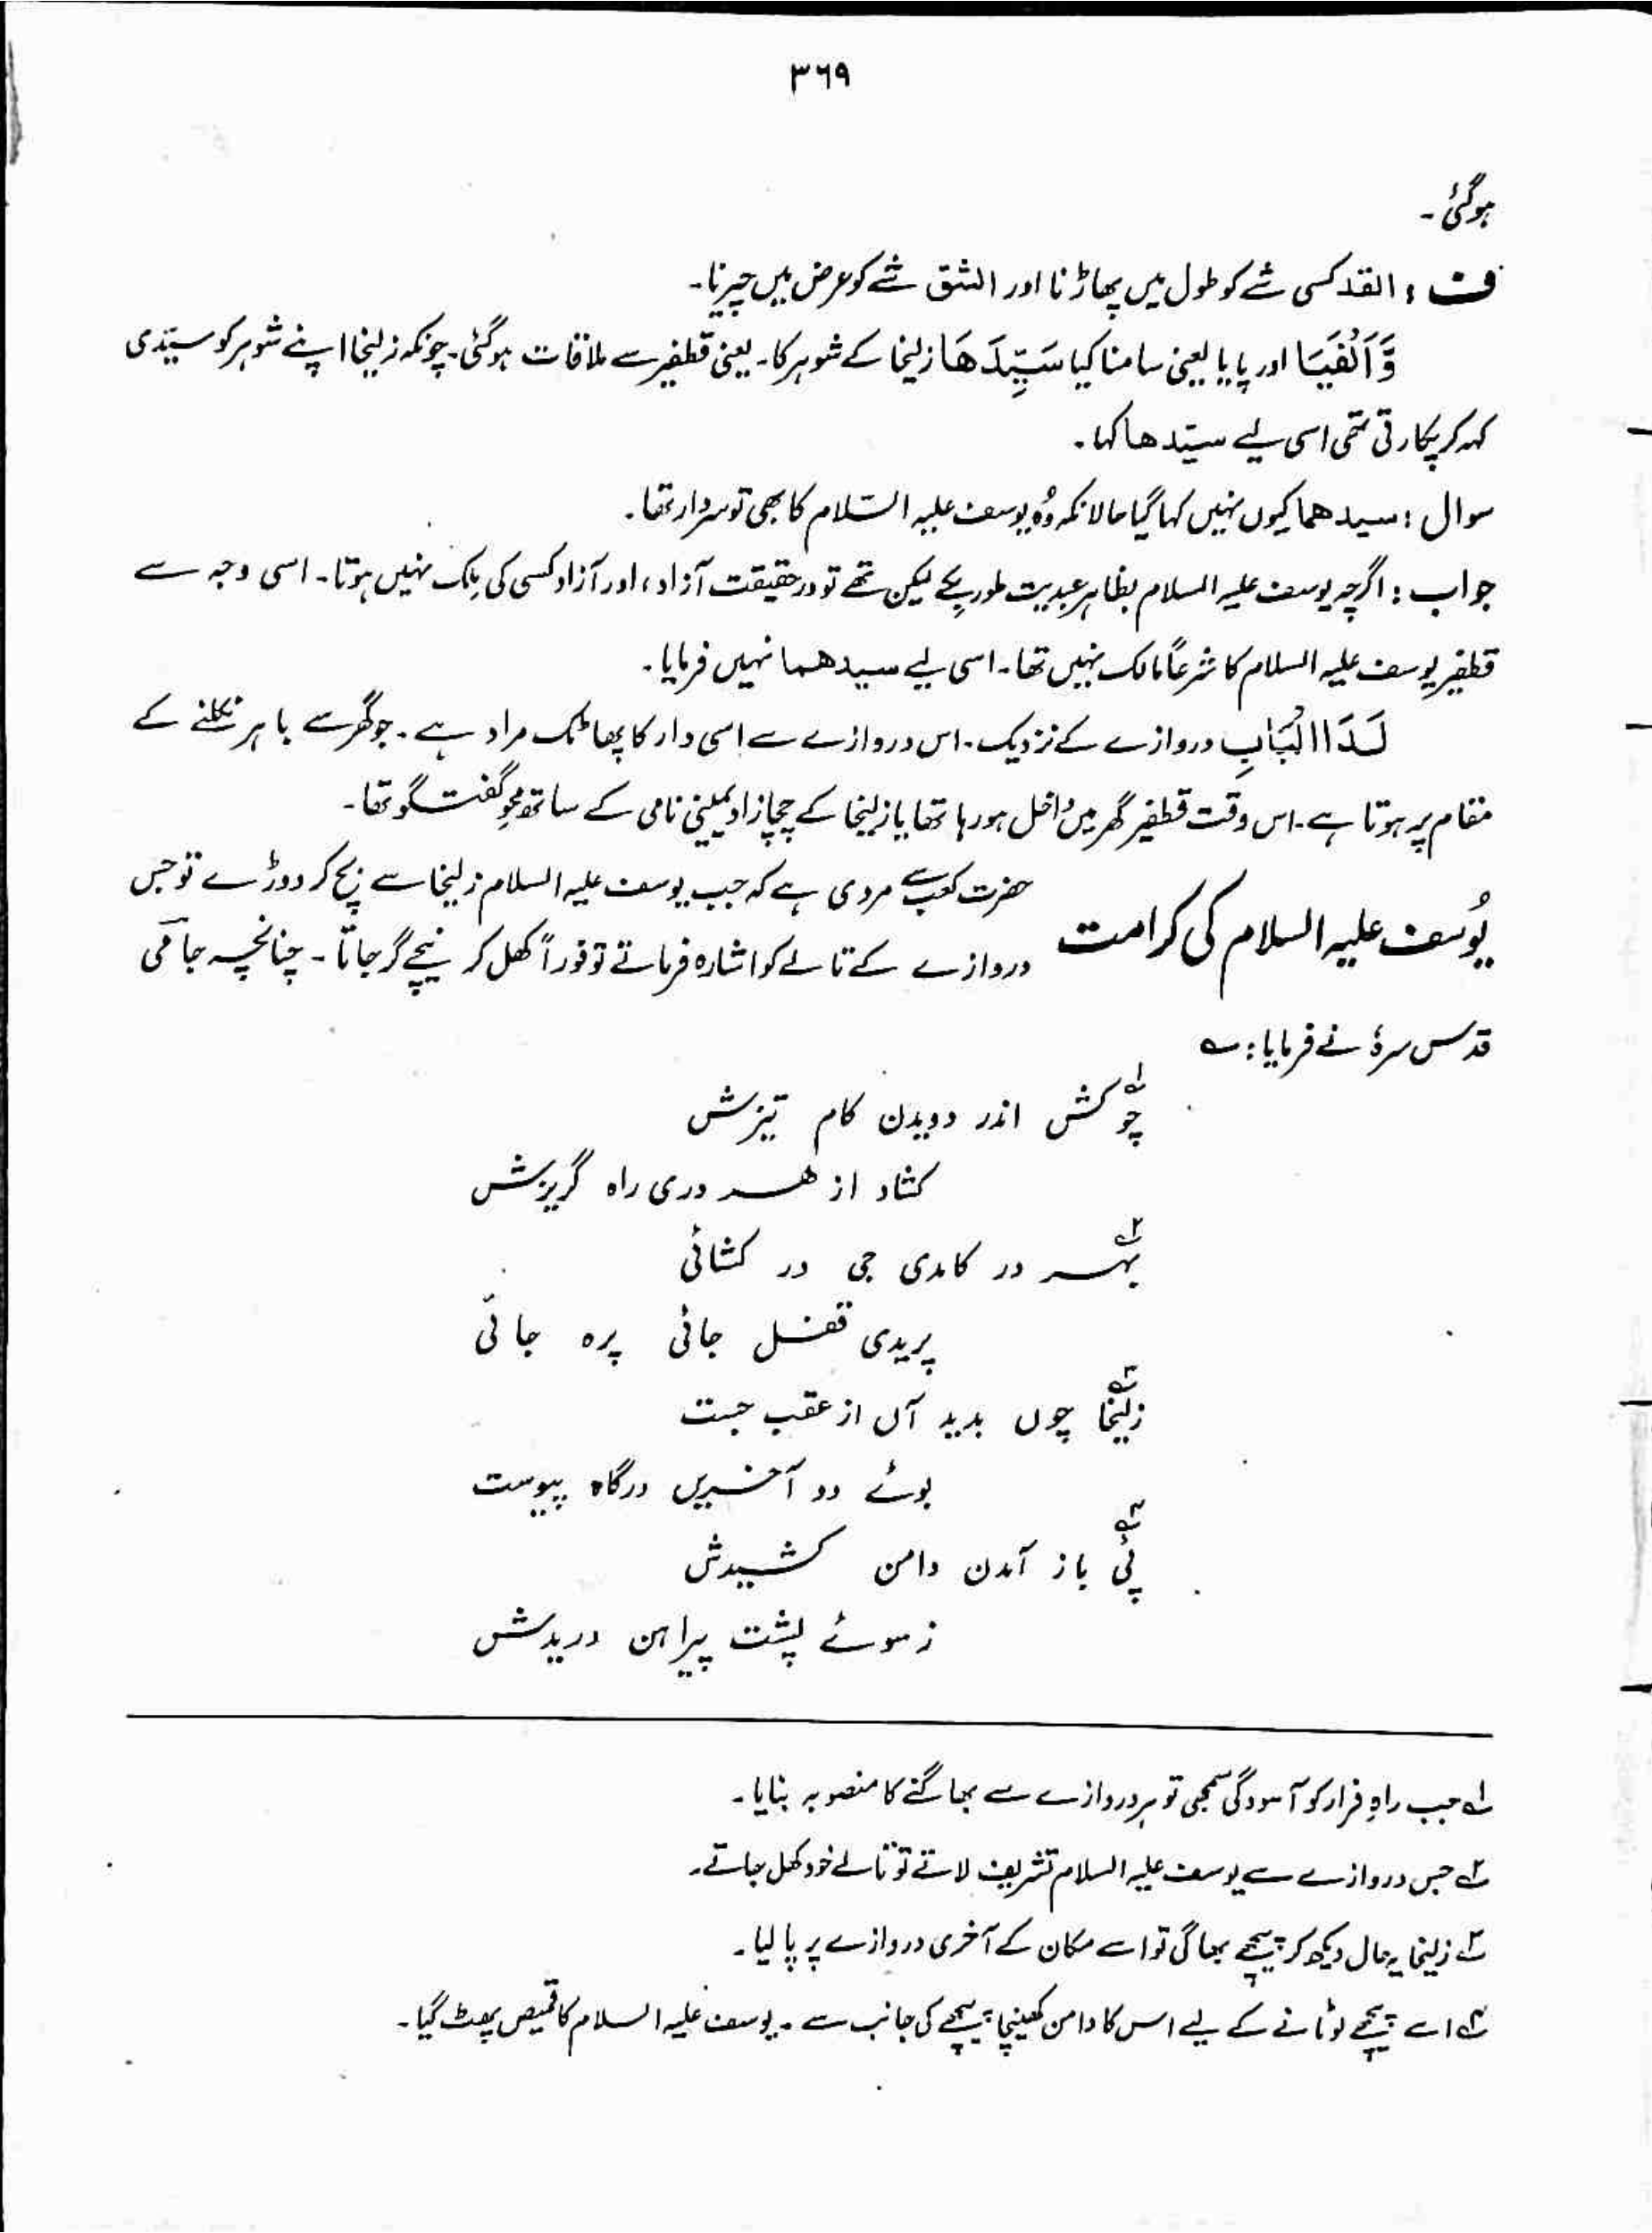 ۳۶۹
ہوگئی۔
ف : القد کسی شے کو طول میں پھاڑنا اور الشق شے کو عرض میں چیرنا۔
وَّ اَلْفَيَا اور پایا یعنی سامنا کیا سَيِّدَهَا زلیخا کے شوہر کا۔ یعنی قطفیر سے ملاقات ہوگئی۔ چونکہ زلیخا اپنے شوہر کو سیّدی
کہہ کر پکارتی تھی اسی لیے سیّدھا کہا۔
سوال : سیدھما کیوں نہیں کہا گیا حالانکہ وُہ یوسف علیہ السّلام کا بھی تو سردار تھا۔
جواب : اگرچہ یوسف علیہ السلام بظاہر عبدیت طور بِکے لیکن تھے تو درحقیقت آزاد ، اور آزاد کسی کی مِلک نہیں ہوتا۔ اسی وجہ سے
قطفیر یوسف علیہ السلام کا شرعاً مالک نہیں تھا۔ اسی لیے سیدھما نہیں فرمایا۔
لَدَا الْبَابِ دروازے کے نزدیک۔ اس دروازے سے اسی دار کا پھاٹک مراد ہے۔ جو گھر سے باہر نکلنے کے
مقام پر ہوتا ہے۔ اس وقت قطفیر گھر میں داخل ہو رہا تھا یا زلیخا کے چچا زاد یملیخی نامی کے ساتھ محوِ گفتگو تھا۔
یُوسف علیہ السلام کی کرامت حضرت کعب سے مروی ہے کہ جب یوسف علیہ السلام زلیخا سے بچ کر دوڑے تو جس
دروازے کے تالے کو اشارہ فرماتے تو فوراً کھل کر نیچے گر جاتا۔ چنانچہ جامی
قدس سرہٗ نے فرمایا : ؎
۱؎ چو کش اندر دویدن کام تیزش
کشاد از ھر دری راہ گریزش
۲؎ بہر در کامدی جی در کشائی
پریدی قفل جائی پرہ جائی
۳؎ زلیخا چوں بدید آں از عقب جست
بوئے دو آخریں درگاہ پیوست
۴؎ پئی باز آمدن دامن کشیدش
ز سوئے پشت پیراہن دریدش
۱؎ جب راہِ فرار کو آسودگی سمجھی تو ہر دروازے سے بھاگنے کا منصوبہ بنایا۔
۲؎ جس دروازے سے یوسف علیہ السلام تشریف لاتے تو تالے خود کھل جاتے۔
۳؎ زلیخا یہ حال دیکھ کر پیچھے بھاگی تو اسے مکان کے آخری دروازے پر پا لیا۔
۴؎ اسے پیچھے لوٹانے کے لیے اس کا دامن کھینچا پیچھے کی جانب سے۔ یوسف علیہ السلام کا قمیص پھٹ گیا۔